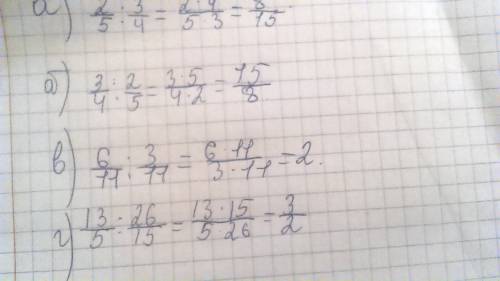 а) 2/5 : 3/4 = 2·4/5·3 = 8/15.
б) 3/4 : 2/5 = 3·5/4·2 = 15/8.
в) 6/11 : 3/11 = 6·11/3·11 = 2.
г) 13/5 : 26/15 = 13·15/5·26 = 3/2